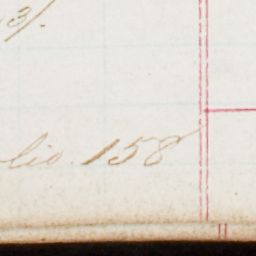 3/.
lio 158